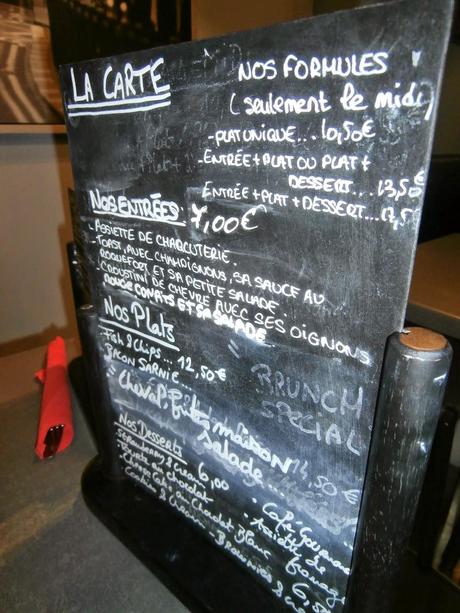 LA CARTE
NOS FORMULES
(seulement le midi)
- PLAT UNIQUE... 10,50€
- ENTRÉE + PLAT OU PLAT +
DESSERT... 13,50€
ENTRÉE + PLAT + DESSERT...
NOS ENTRÉES 7,00€
- ASSIETTE DE CHARCUTERIE.
- TOAST, AVEC CHAMPIGNONS, SA SAUCE AU
ROQUEFORT ET SA PETITE SALADE
- CROUSTINI DE CHEVRE AVEC SES OIGNONS
ROUGE CONFITS ET SA SALADE
NOS PLATS
Fish & Chips... 12,50€
BACON SARNIE...
" BRUNCH
SPECIAL
" cheval, frites maison 14,50€
salade
Nos Desserts
STRAWBERRY & Cream 6,00
au chocolat
au chocolat Blanc
Cookies & Cream
- BROWNIES
. Café Gourmand
. Assiette de
fromage